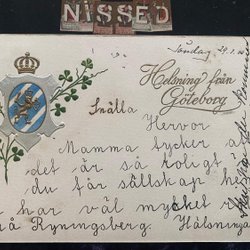 NISSED
Söndag 29.1.
Helsning från
Göteborg
Snälla
Hervor
Mamma tycker a
det är så roligt a
du får sällskap he
har väl mycket
på Ryningsberg. Hälsning